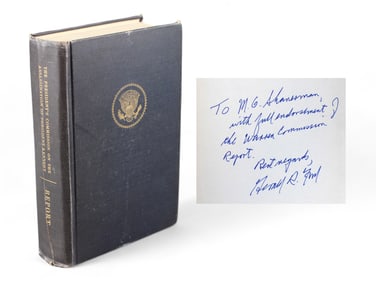 THE PRESIDENT'S COMMISSION ON THE
ASSASSINATION OF PRESIDENT KENNEDY
REPORT
To M. G.
with full endorsement of
the Warren Commission
Report.
Best regards,
Gerald R. Ford